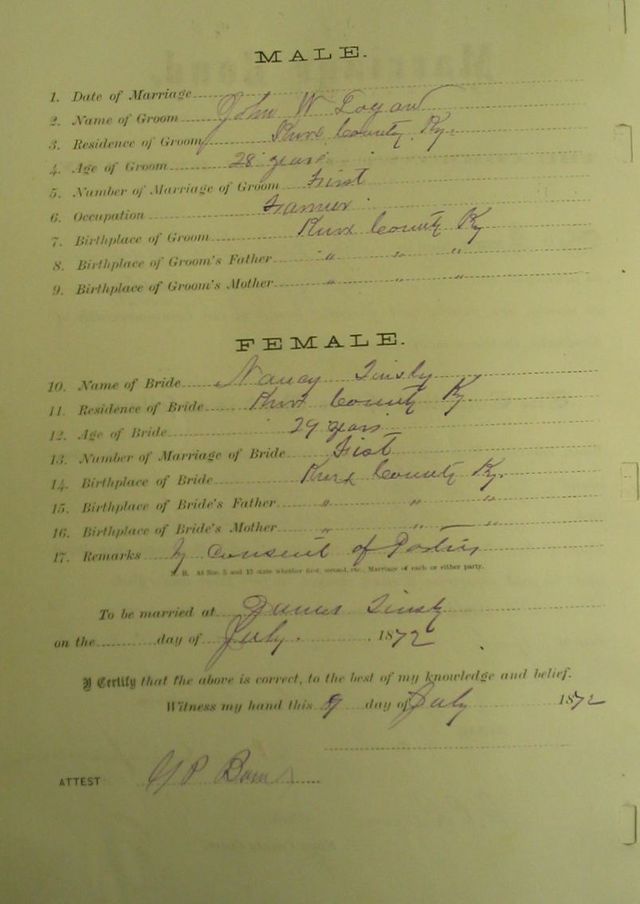 MALE.
1. Date of Marriage
2. Name of Groom John W Logan
3. Residence of Groom Knox County Ky.
4. Age of Groom 28 years
5. Number of Marriage of Groom First
6. Occupation Farmer
7. Birthplace of Groom Knox County Ky
8. Birthplace of Groom's Father " " "
9. Birthplace of Groom's Mother " " "
FEMALE.
10. Name of Bride Nancy Tinsly
11. Residence of Bride Knox County Ky
12. Age of Bride 29 years
13. Number of Marriage of Bride First
14. Birthplace of Bride Knox County Ky.
15. Birthplace of Bride's Father " " "
16. Birthplace of Bride's Mother " " "
17. Remarks By Consent of Parties
N. B. At Nos. 5 and 13 state whether first, second, etc., Marriage of each or either party.
To be married at James Tinsly
on the day of July. 1872
I Certify that the above is correct, to the best of my knowledge and belief.
Witness my hand this 9 day of July 1872
ATTEST